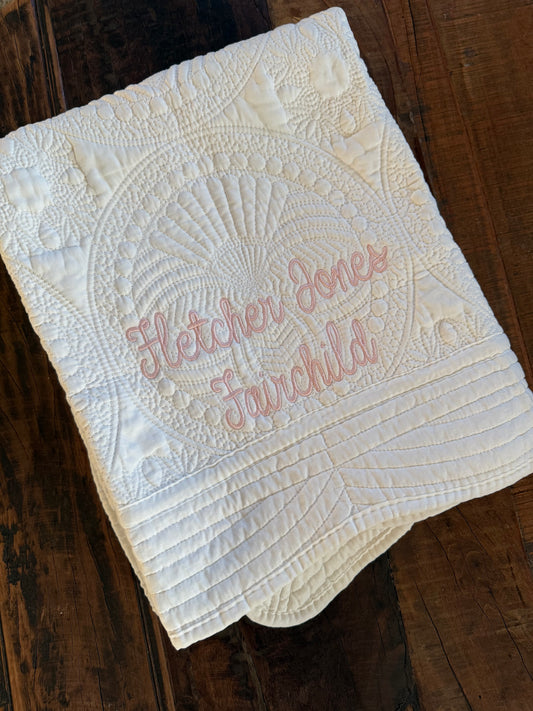 Fletcher Jones
Fairchild